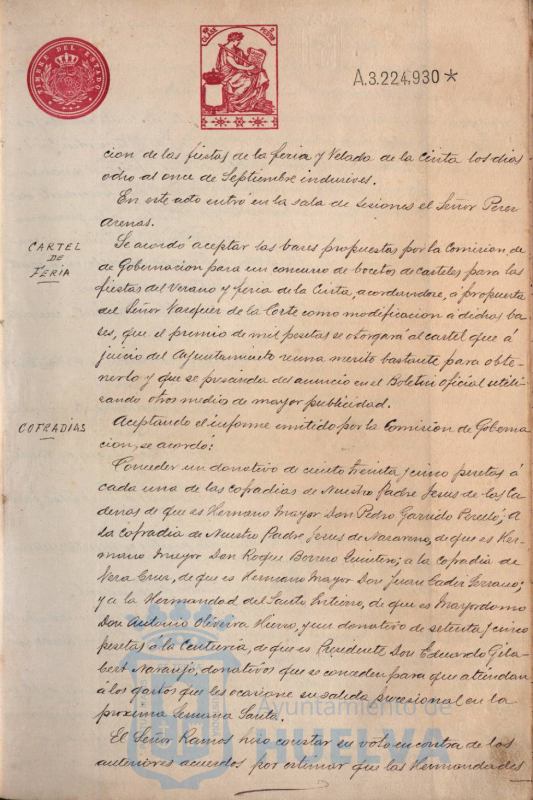 TIMBRE DEL ESTADO
A.3.224,930*
cion de las fiestas de la feria y Velada de la Cinta los dias
ocho al once de Septiembre inclusives.
En este acto entró en la sala de sesiones el Señor Perez
Arenas.
CARTEL
DE
FERIA
Se acordó aceptar las bases propuestas por la Comision de
de Gobernacion para un concurso de bocetos de carteles para las
fiestas del Verano y feria de la Cinta, acordandose, á propuesta
del Señor Vazquez de la Corte como modificacion á dichas ba
ses, que el premio de mil pesetas se otorgará al cartel que á
juicio del Ayuntamiento reuna merito bastante para obte-
nerlo y que se prescinda del anuncio en el Boletin oficial utili-
zando otros medios de mayor publicidad.
COFRADIAS
Aceptando el informe emitido por la Comision de Goberna
cion, se acordó:
Conceder un donativo de ciento treinta y cinco pesetas á
cada una de las cofradias de Nuestro Padre Jesus de las Ca
denas de que es Hermano Mayor Don Pedro Garrido Perelló; A
la cofradia de Nuestro Padre Jesus de Nazareno, de que es Her-
mano Mayor Don Roque Borrero Quintero; a la cofradia de
Vera Cruz, de que es Hermano Mayor Don Juan Cadix Serrano;
y á la Hermandad del Santo Entierro, de que es Mayordomo
Don Antonio Oliveira Hierro, y un donativo de setenta y cinco
pesetas á la Centuria, de que es Presidente Don Eduardo Gila-
bert Naranjo, donativos que se conceden para que atiendan
á los gastos que les ocasione su salida procesional en la
proxima Semana Santa.
El Señor Ramos hizo constar su voto en contra de los
anteriores acuerdos por estimar que las Hermandades
Ayuntamiento de
HUELVA